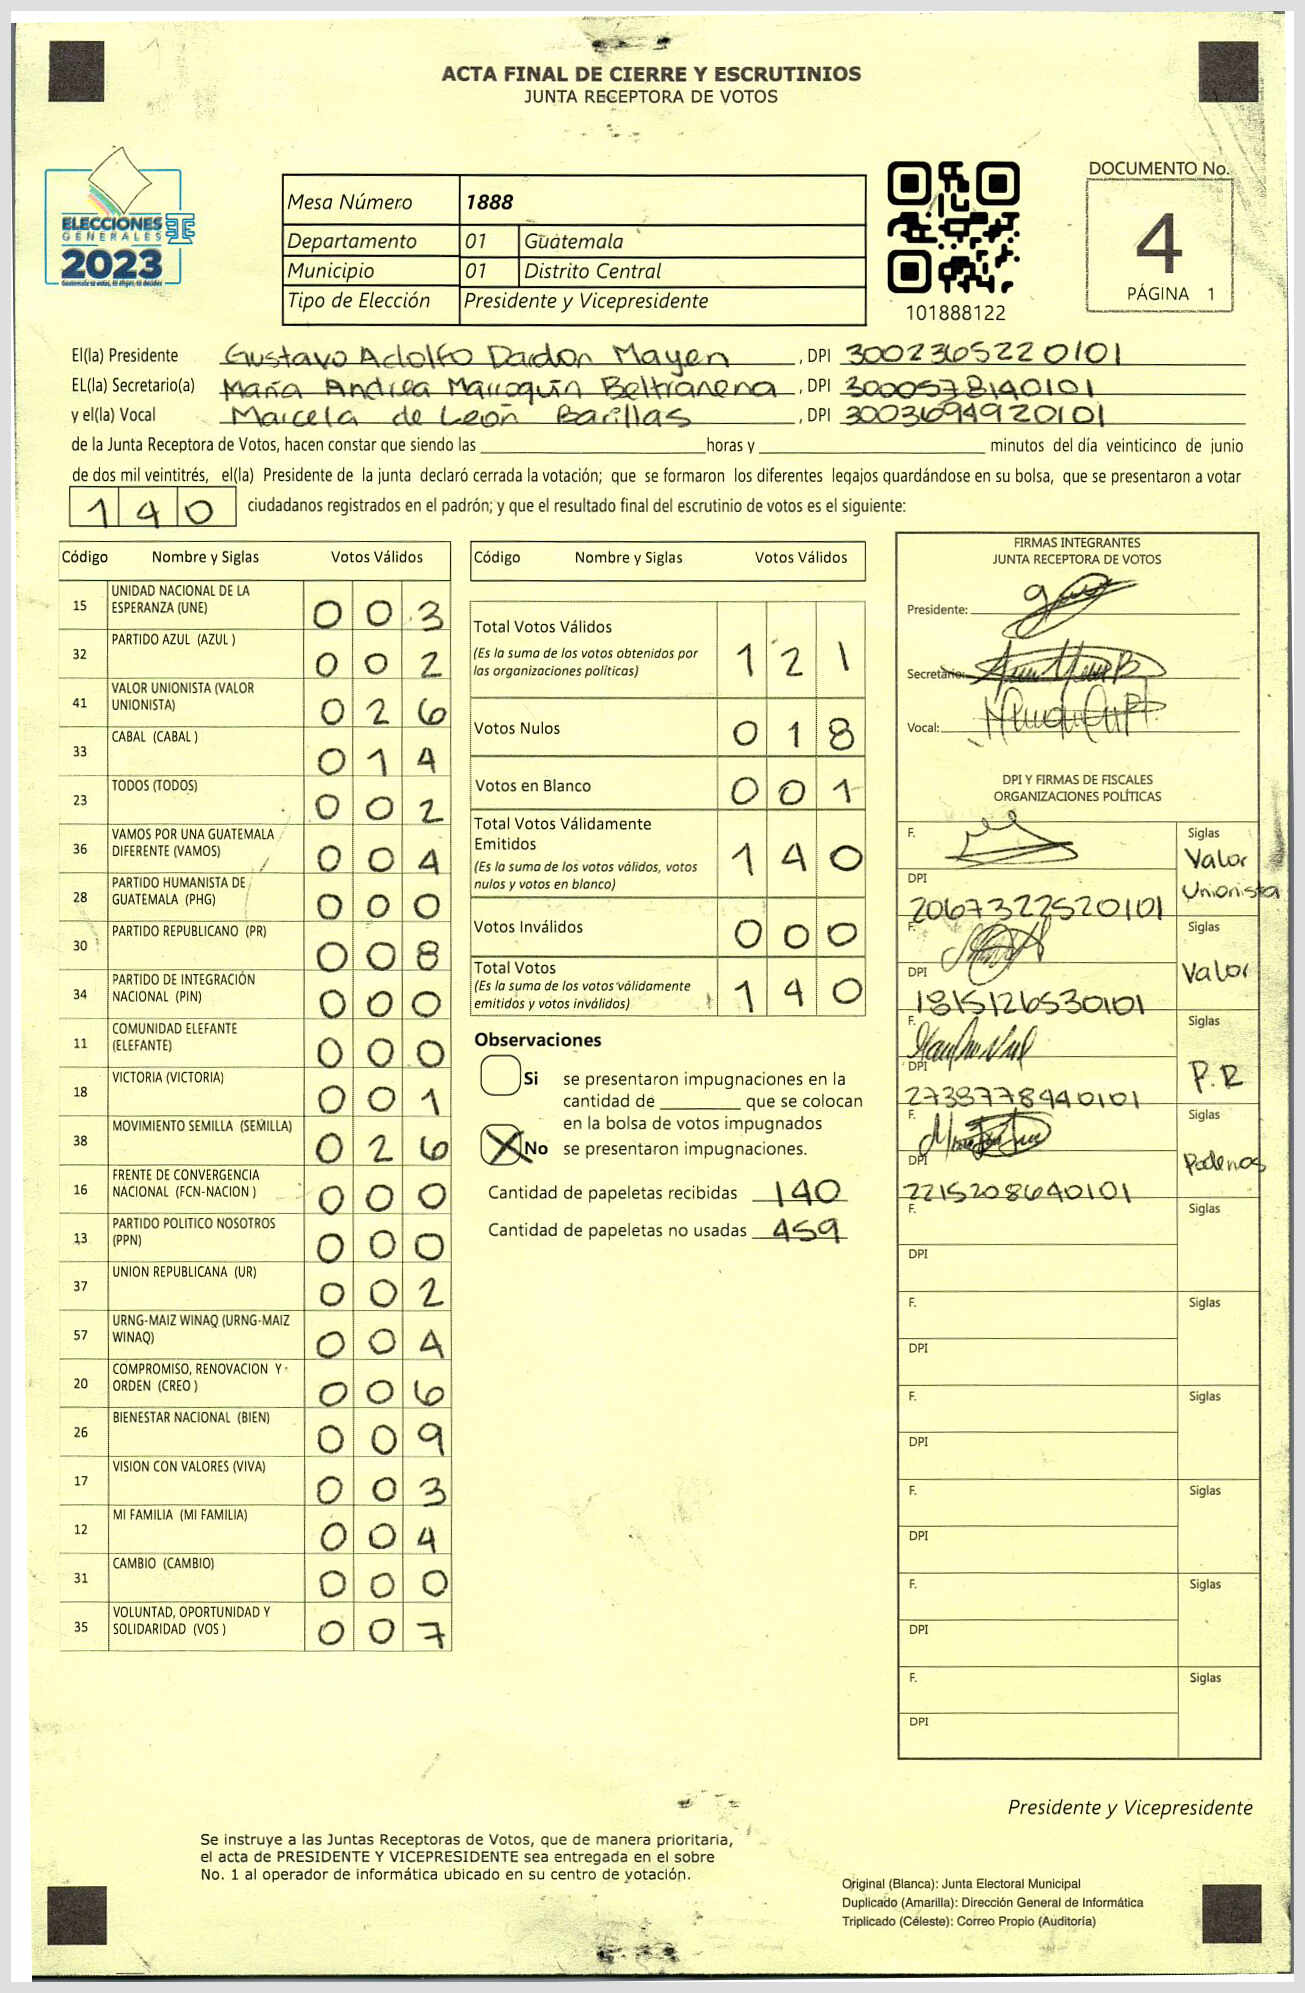 ACTA FINAL DE CIERRE Y ESCRUTINIOS
JUNTA RECEPTORA DE VOTOS
ELECCIONES
GENERALES
2023
Mesa Número 1888
Departamento 01 Guatemala
Municipio 01 Distrito Central
Tipo de Elección Presidente y Vicepresidente
101888122
DOCUMENTO No.
4
PÁGINA 1
El(la) Presidente Gustavo Adolfo Dardon Mayen, DPI 3002365220101
EL(la) Secretario(a) María Andrea Marroquín Beltranena, DPI 3000578140101
y el(la) Vocal Marcela de León Barillas, DPI 3003694920101
de la Junta Receptora de Votos, hacen constar que siendo las ____ horas y ____ minutos del día veinticinco de junio
de dos mil veintitrés, el(la) Presidente de la junta declaró cerrada la votación; que se formaron los diferentes legajos guardándose en su bolsa, que se presentaron a votar
140 ciudadanos registrados en el padrón; y que el resultado final del escrutinio de votos es el siguiente:
Código Nombre y Siglas Votos Válidos
15 UNIDAD NACIONAL DE LA
ESPERANZA (UNE) 003
32 PARTIDO AZUL (AZUL ) 002
41 VALOR UNIONISTA (VALOR
UNIONISTA) 026
33 CABAL (CABAL ) 014
23 TODOS (TODOS) 002
36 VAMOS POR UNA GUATEMALA
DIFERENTE (VAMOS) 004
28 PARTIDO HUMANISTA DE
GUATEMALA (PHG) 000
30 PARTIDO REPUBLICANO (PR) 008
34 PARTIDO DE INTEGRACIÓN
NACIONAL (PIN) 000
11 COMUNIDAD ELEFANTE
(ELEFANTE) 000
18 VICTORIA (VICTORIA) 001
38 MOVIMIENTO SEMILLA (SEMILLA) 026
16 FRENTE DE CONVERGENCIA
NACIONAL (FCN-NACION ) 000
13 PARTIDO POLITICO NOSOTROS
(PPN) 000
37 UNION REPUBLICANA (UR) 002
57 URNG-MAIZ WINAQ (URNG-MAIZ
WINAQ) 004
20 COMPROMISO, RENOVACION Y
ORDEN (CREO ) 006
26 BIENESTAR NACIONAL (BIEN) 009
17 VISION CON VALORES (VIVA) 003
12 MI FAMILIA (MI FAMILIA) 004
31 CAMBIO (CAMBIO) 000
35 VOLUNTAD, OPORTUNIDAD Y
SOLIDARIDAD (VOS ) 007
Código Nombre y Siglas Votos Válidos
Total Votos Válidos 121
(Es la suma de los votos obtenidos por
las organizaciones políticas)
Votos Nulos 018
Votos en Blanco 001
Total Votos Válidamente
Emitidos 140
(Es la suma de los votos válidos, votos
nulos y votos en blanco)
Votos Inválidos 000
Total Votos 140
(Es la suma de los votos válidamente
emitidos y votos inválidos)
Observaciones
Si se presentaron impugnaciones en la
cantidad de ____ que se colocan
en la bolsa de votos impugnados
No se presentaron impugnaciones.
Cantidad de papeletas recibidas 140
Cantidad de papeletas no usadas 459
FIRMAS INTEGRANTES
JUNTA RECEPTORA DE VOTOS
Presidente:
Secretario:
Vocal:
DPI Y FIRMAS DE FISCALES
ORGANIZACIONES POLÍTICAS
F. Siglas Valor
Unionista
DPI 2067322520101
F. Siglas Valor
DPI 1815126530101
F. Siglas P.R
DPI 2738778440101
F. Siglas Podemos
DPI 2215208640101
F. Siglas
DPI
F. Siglas
DPI
F. Siglas
DPI
F. Siglas
DPI
F. Siglas
DPI
F. Siglas
DPI
Presidente y Vicepresidente
Se instruye a las Juntas Receptoras de Votos, que de manera prioritaria,
el acta de PRESIDENTE Y VICEPRESIDENTE sea entregada en el sobre
No. 1 al operador de informática ubicado en su centro de votación.
Original (Blanca): Junta Electoral Municipal
Duplicado (Amarilla): Dirección General de Informática
Triplicado (Céleste): Correo Propio (Auditoría)